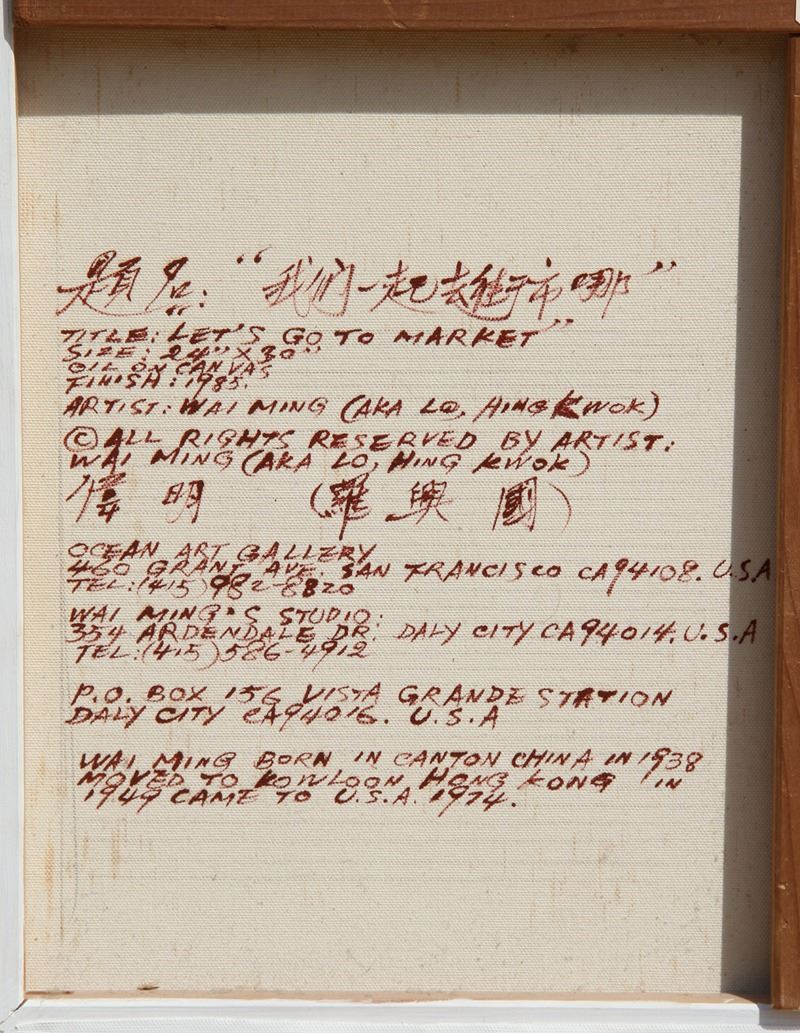 題名：“我们一起去趁市哪”
TITLE: LET'S GO TO MARKET"
SIZE: 24" X 30"
OIL ON CANVAS
FINISH: 1985.
ARTIST: WAI MING (AKA LO, HING KWOK)
© ALL RIGHTS RESERVED BY ARTIST:
WAI MING (AKA LO, HING KWOK)
明 (羅興國)
OCEAN ART GALLERY
460 GRANT AVE. SAN FRANCISCO CA94108. U.S.A
TEL: (415) 982-8820
WAI MING'S STUDIO:
354 ARDENDALE DR. DALY CITY CA94014. U.S.A
TEL: (415) 586-4912
P.O. BOX 156 VISTA GRANDE STATION
DALY CITY CA94016. U.S.A
WAI MING BORN IN CANTON CHINA IN 1938
MOVED TO KOWLOON HONG KONG IN
1949 CAME TO U.S.A. 1974.